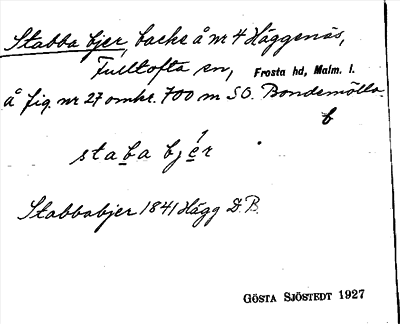 Stabba bjer, backe å nr 4 Häggenäs,
Fulltofta sn, Frosta hd, Malm. l.
å fig. nr 27 omkr. 700 m SO. Bondemölla.
b
staba bjér
Stabbabjer 1841 Hägg D.B.
GÖSTA SJÖSTEDT 1927